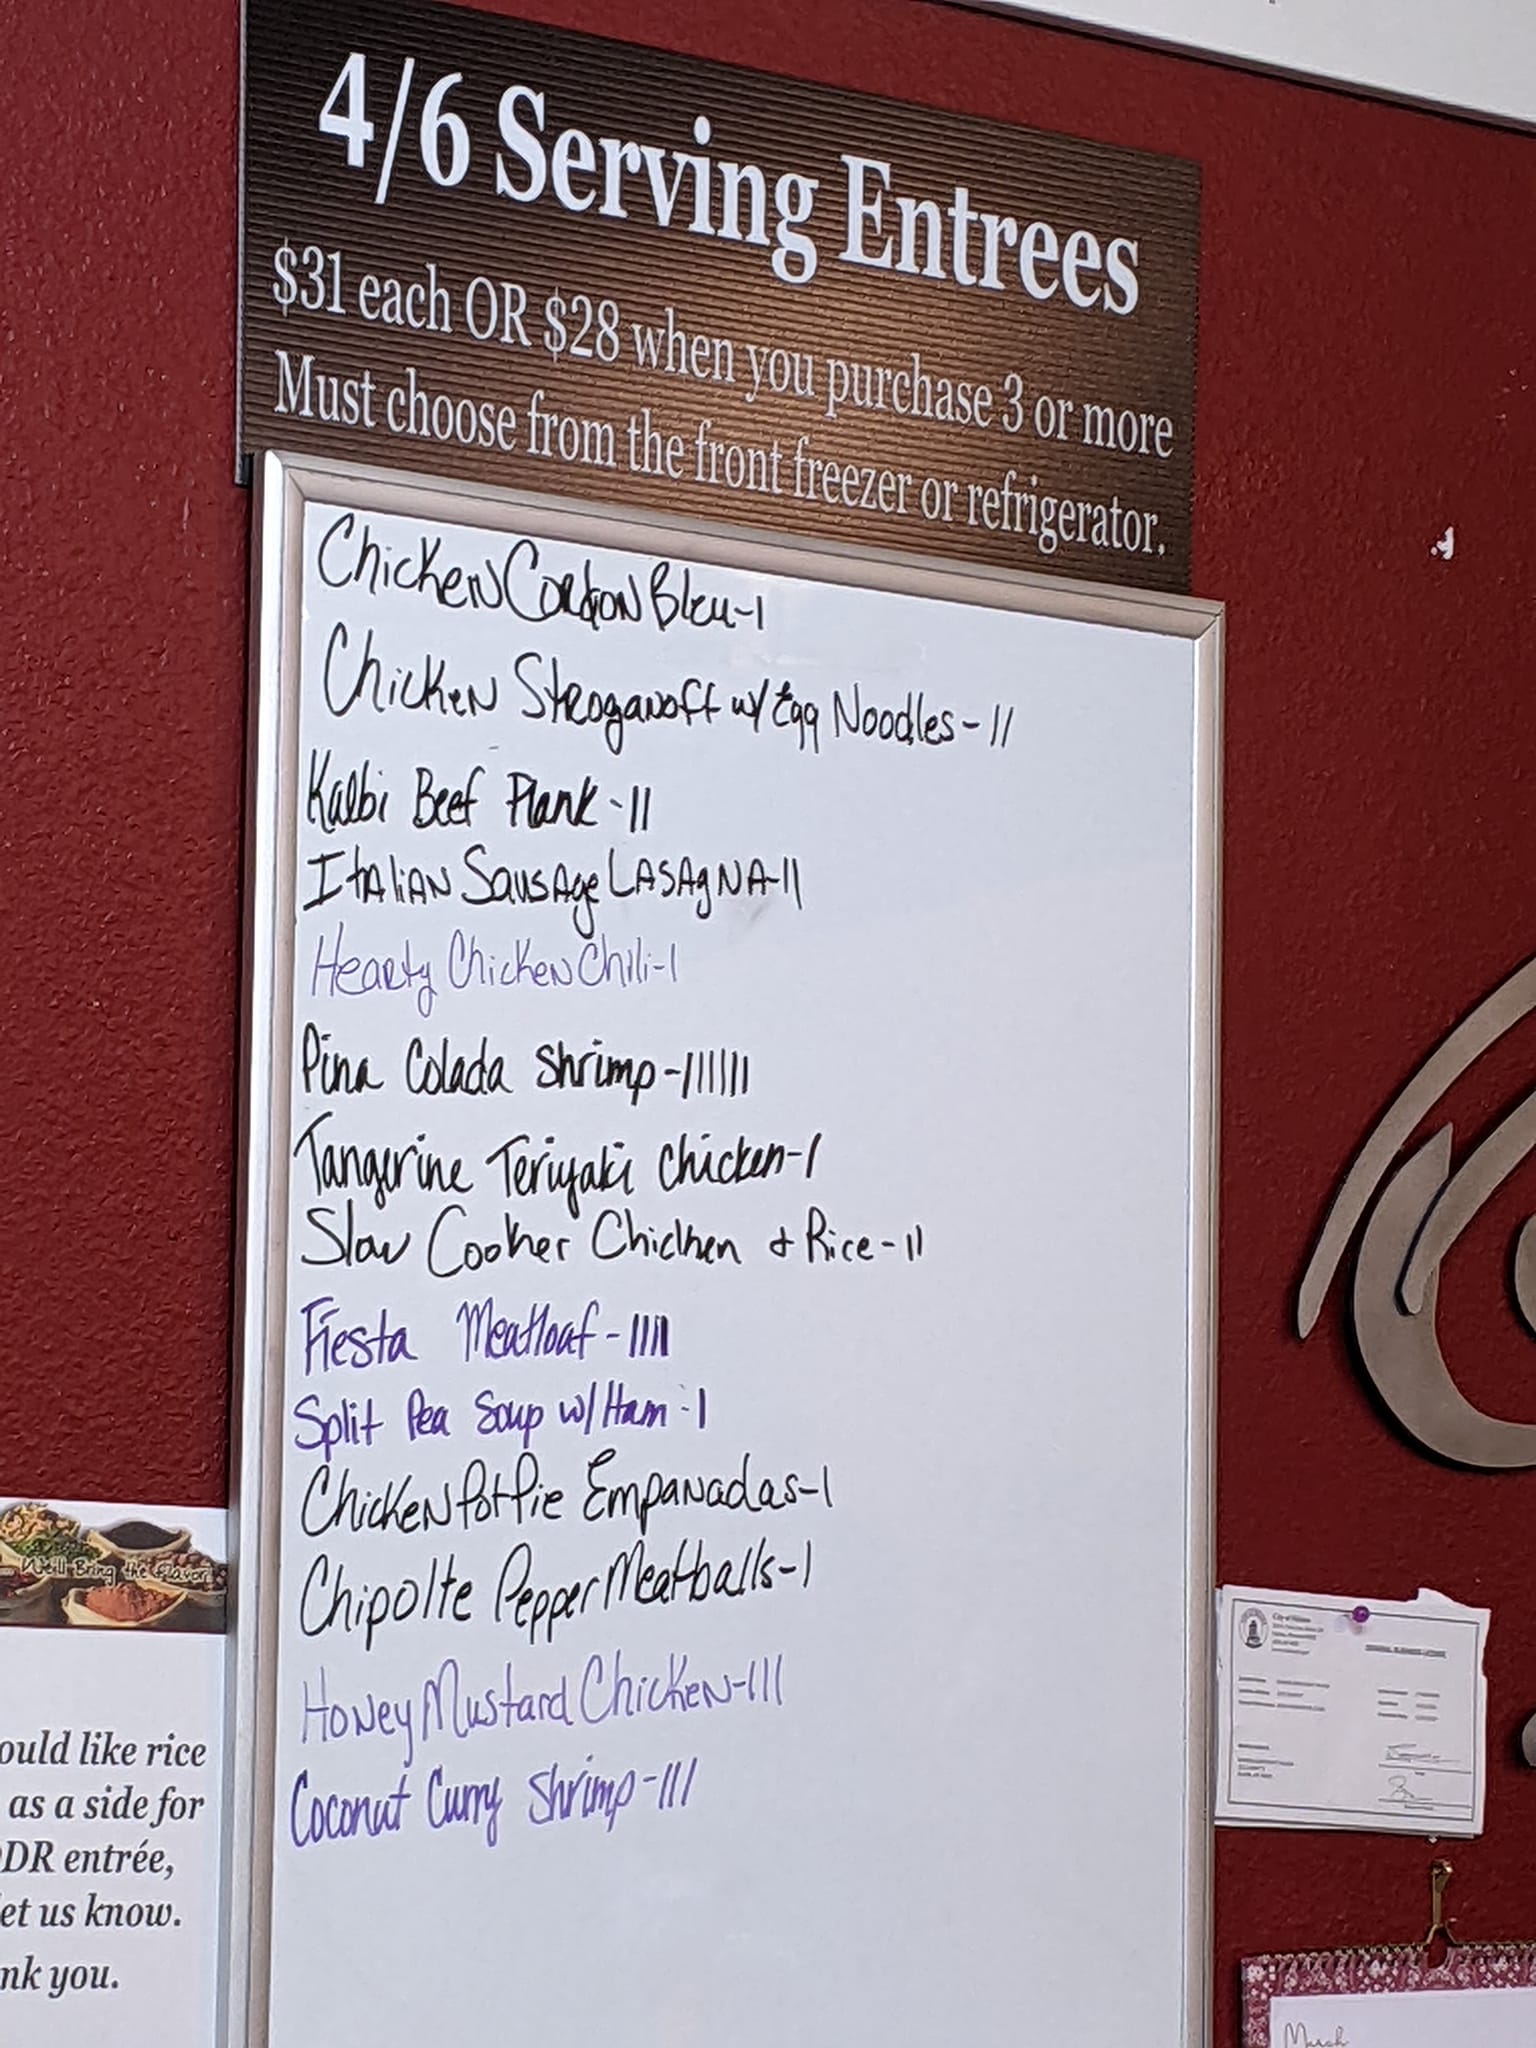 4/6 Serving Entrees
$31 each OR $28 when you purchase 3 or more
Must choose from the front freezer or refrigerator.
Chicken Cordon Bleu-I
Chicken Stroganoff w/ Egg Noodles-II
Kalbi Beef Plank-II
ItAliAN SausAge LASAgNA-II
Hearty Chicken Chili-I
Pina Colada Shrimp-IIIIII
Tangerine Teriyaki Chicken-I
Slow Cooker Chicken & Rice-II
Fiesta Meatloaf-IIII
Split Pea Soup w/ Ham-I
Chicken Pot Pie Empanadas-I
Chipolte Pepper Meatballs-I
Honey Mustard Chicken-III
Coconut Curry Shrimp-III
We'll Bring the Flavor!
ould like rice
as a side for
DR entrée,
et us know.
nk you.
March